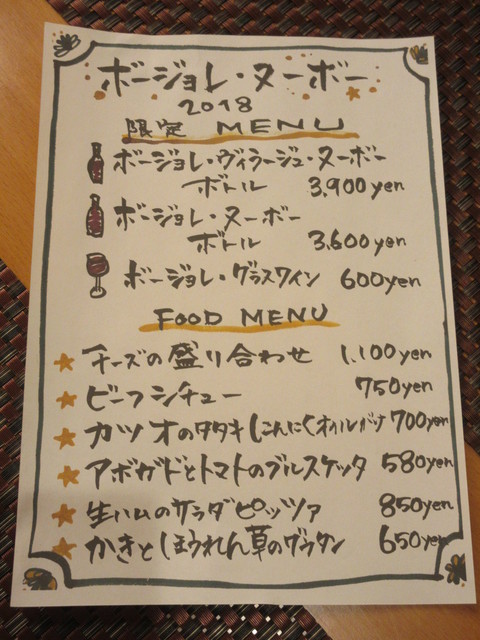 ボージョレ・ヌーボー
2018
限定 MENU
ボージョレ・ヴィラージュ・ヌーボー
ボトル 3,900yen
ボージョレ・ヌーボー
ボトル 3,600yen
ボージョレ・グラスワイン 600yen
FOOD MENU
チーズの盛り合わせ 1,100yen
ビーフシチュー 750yen
カツオのタタキ 700yen
アボガドとトマトのブルスケッタ 580yen
生ハムのサラダピッツァ 850yen
かきとほうれん草のグラタン 650yen